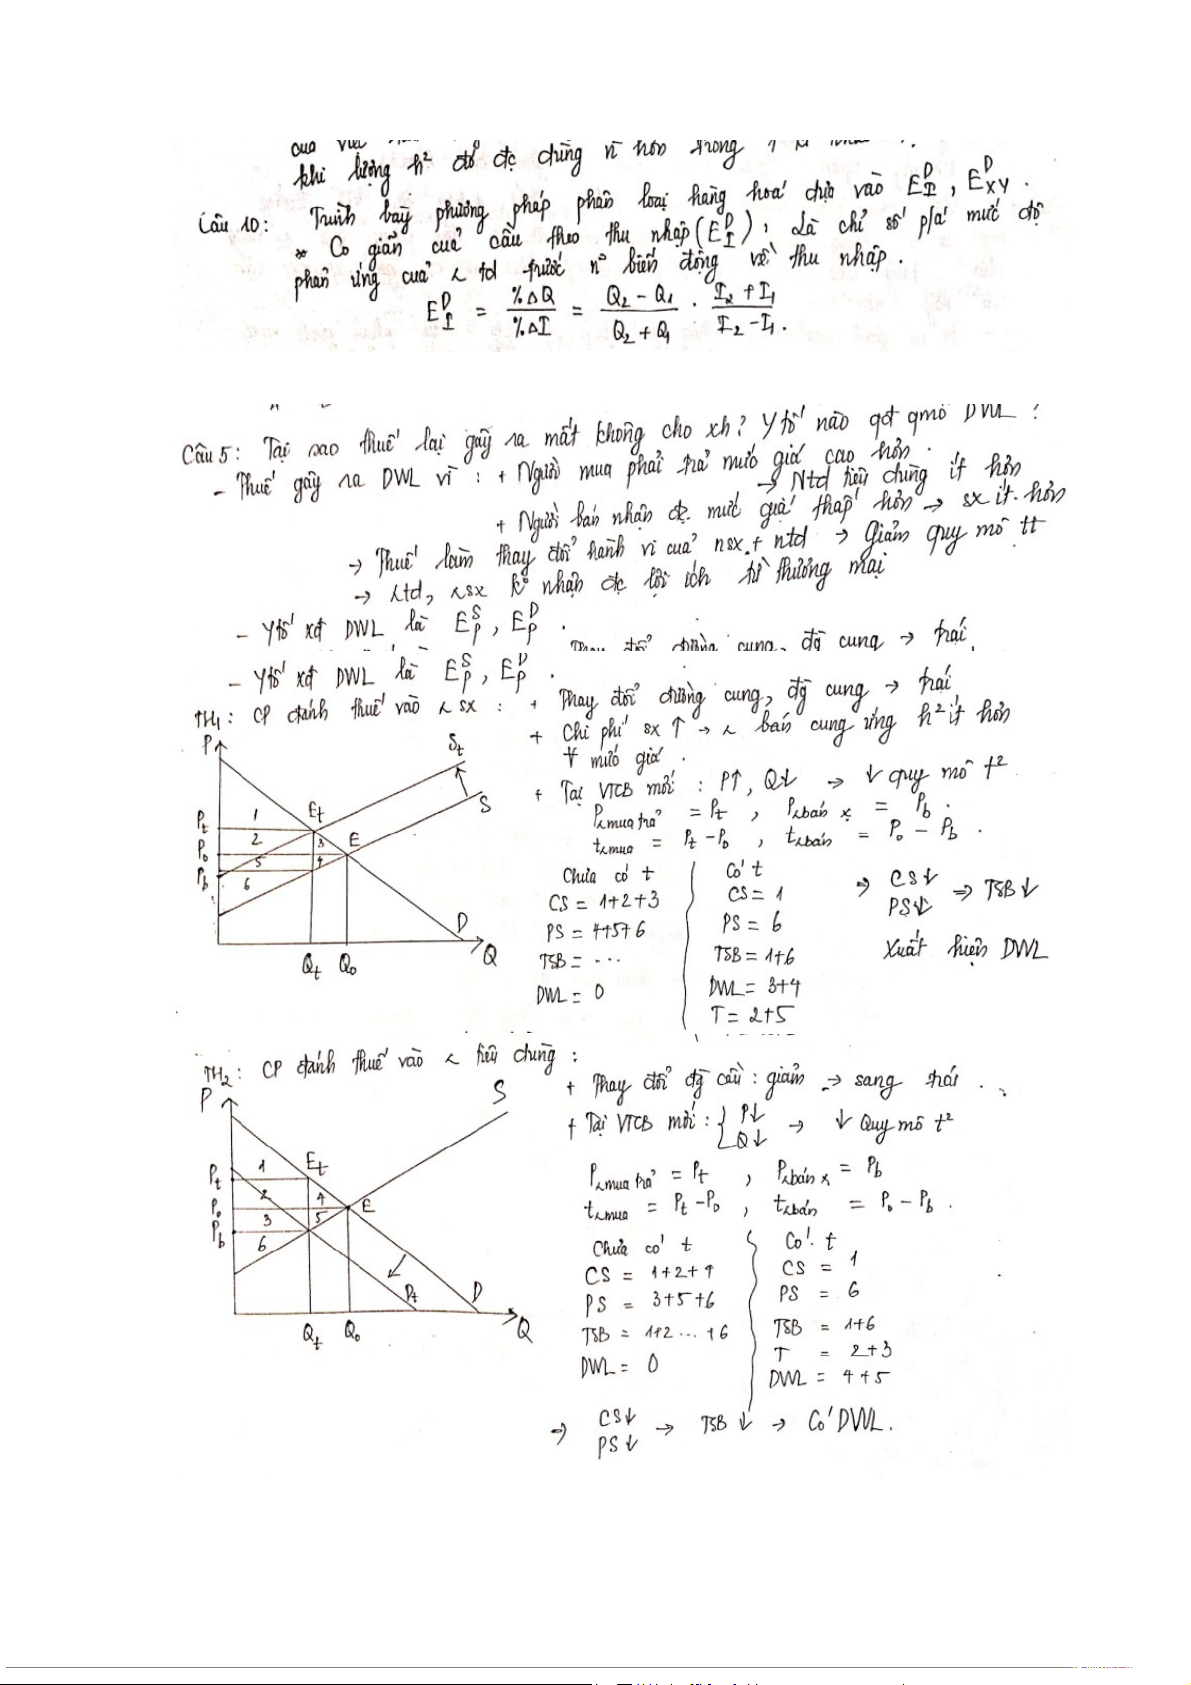 khi lượng h² đó đc dùng n hơn trong 1
Câu 10: Trình bày phương pháp phân loại hàng hoá dựa vào E^D_I, E^D_XY.
* Co giãn của cầu theo thu nhập (E^D_I): Là chỉ số p/á mức độ
phản ứng của ng td trước n~ biến động về thu nhập.
E^D_I = %ΔQ / %ΔI = (Q2 - Q1)/(Q2 + Q1) . (I2 + I1)/(I2 - I1).
Câu 5: Tại sao thuế lại gây ra mất không cho xh? Ytố nào qđ qmô DWL?
- Thuế gây ra DWL vì: + Người mua phải trả mức giá cao hơn.
→ Ntd tiêu dùng ít hơn
+ Người bán nhận đc mức giá thấp hơn → sx ít hơn
→ Thuế làm thay đổi hành vi của nsx + ntd → Giảm quy mô tt
→ ntd, nsx k nhận đc lợi ích từ thương mại
- Ytố xđ DWL là E^S_P, E^D_P.
Thay đổi đường cung, đg cung → trái,
- Ytố xđ DWL là E^S_P, E^D_P.
TH1: CP đánh thuế vào n sx: + Thay đổi đường cung, đg cung → trái
+ Chi phí sx ↑ → n bán cung ứng h² ít hơn
∀ mức giá.
+ Tại VTCB mới: P↑, Q↓ → ↓ quy mô t²
P n mua trả = Pt, P n bán x = Pb.
t n mua = Pt - P0, t n bán = P0 - Pb.
P
St
S
Et
E
Pt
P0
Pb
1
2
3
4
5
6
D
Qt Q0 Q
Chưa có t
CS = 1+2+3
PS = 4+5+6
TSB = ...
DWL = 0
Có t
CS = 1
PS = 6
TSB = 1+6
DWL = 3+4
T = 2+5
⇒ CS↓
PS↓ ⇒ TSB↓
Xuất hiện DWL
TH2: CP đánh thuế vào n tiêu dùng:
+ Thay đổi đg cầu: giảm → sang trái.
+ Tại VTCB mới: { P↓
Q↓ → ↓ Quy mô t²
P n mua trả = Pt, P n bán x = Pb
t n mua = Pt - P0, t n bán = P0 - Pb.
P
S
Et
E
Pt
P0
Pb
1
2
4
3
5
6
Pt
D
Qt Q0 Q
Chưa có t
CS = 1+2+4
PS = 3+5+6
TSB = 1+2...+6
DWL = 0
Có t
CS = 1
PS = 6
TSB = 1+6
T = 2+3
DWL = 4+5
⇒ CS↓
PS↓ → TSB↓ → Có DWL.